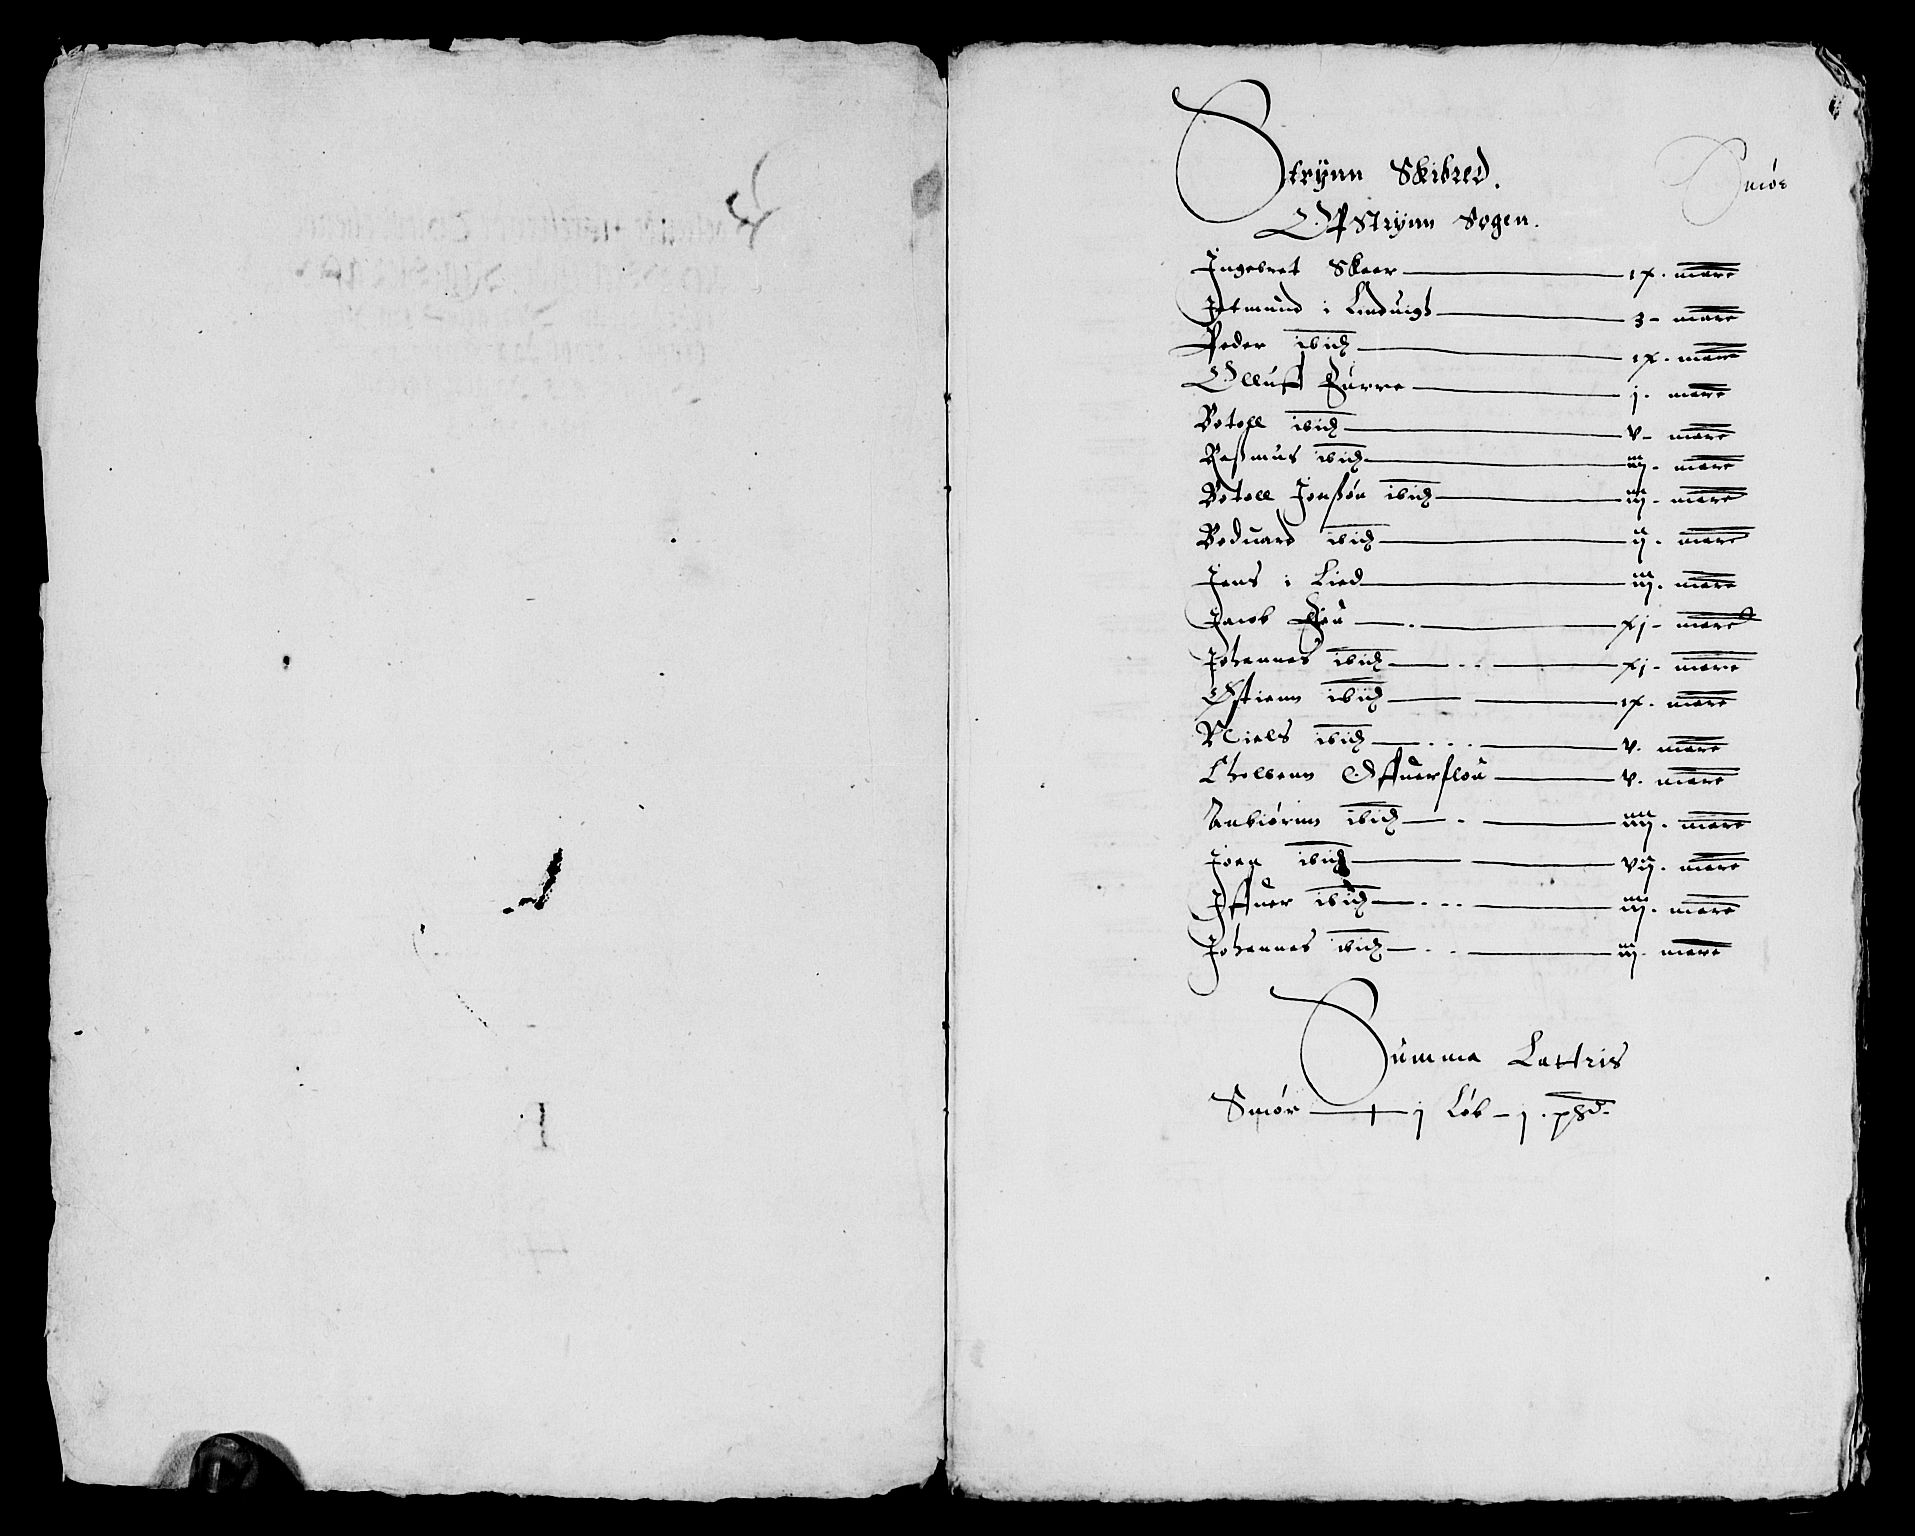 Smör
Strÿnn Skibred.
Opstrÿnn Sogen.
Ingebret Skaar — ix. marc
Jetmund i Linduigh — 3 - marc
Peder ibid — ix. marc
Olluff Furre — j. marc
Botoll ibid — v - marc
Rasmus ibid — iij. marc
Botoll Jonsøn ibid — iij - marc
Boduard ibid — ij. marc
Jens i Lied — iij. marc
Jacob — xj - marc
Johannes ibid — xj - marc
Østienn ibid — ix. marc
Niels ibid — v. marc
Tholvenn Øffuerflou — v. marc
Anbiørnn ibid — iiij. marc
Joen ibid — vij. marc
Iffuer ibid — iiij. marc
Johannes ibid — iij. marc
Summa Lattris
Smör — j Løb - j. pd.